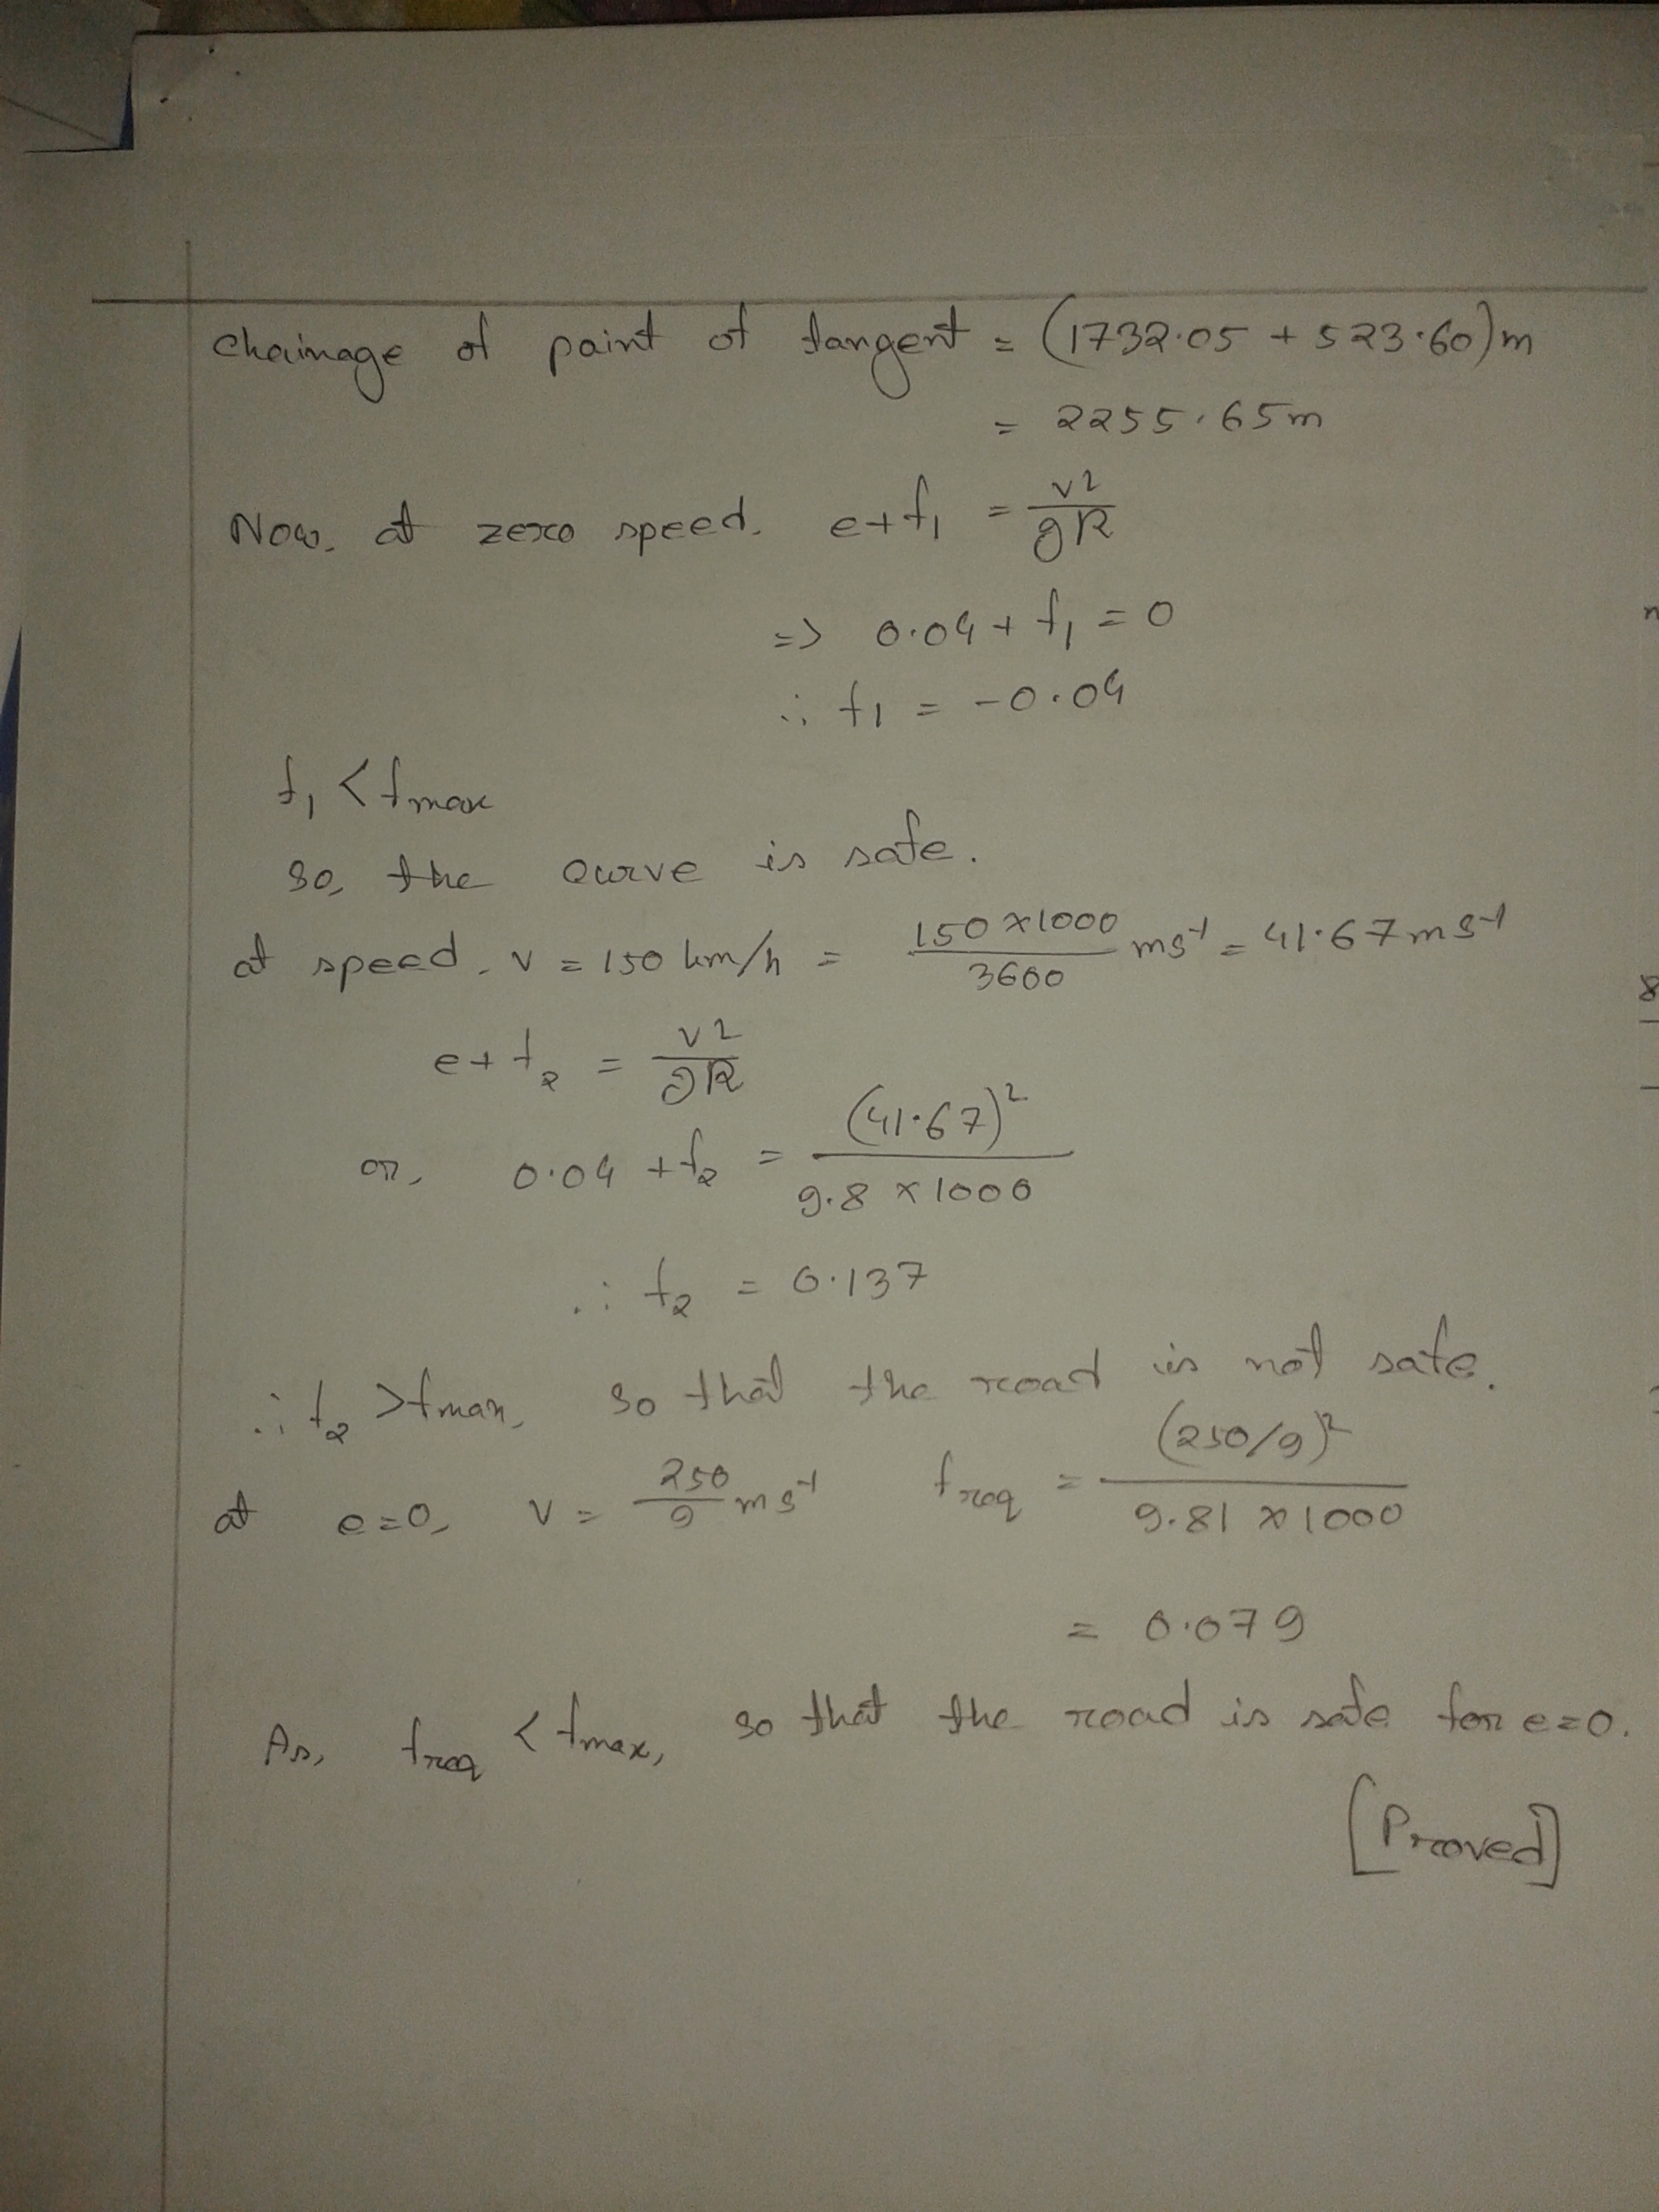 Chainage of point of tangent = (1732.05 + 523.60)m
= 2255.65m
Now, at zero speed, e+f₁ = v²/gR
=> 0.04 + f₁ = 0
∴ f₁ = -0.04
f₁ < fmax
So, the curve is safe.
at speed, v = 150 km/h = 150×1000/3600 ms⁻¹ = 41.67 ms⁻¹
e+f₂ = v²/gR
or, 0.04 + f₂ = (41.67)²/9.8 × 1000
∴ f₂ = 0.137
∴ f₂ > fmax, so that the road is not safe.
at e=0, v = 250/9 ms⁻¹ freq = (250/9)²/9.81 × 1000
= 0.079
As, freq < fmax, so that the road is safe for e=0.
[Proved]